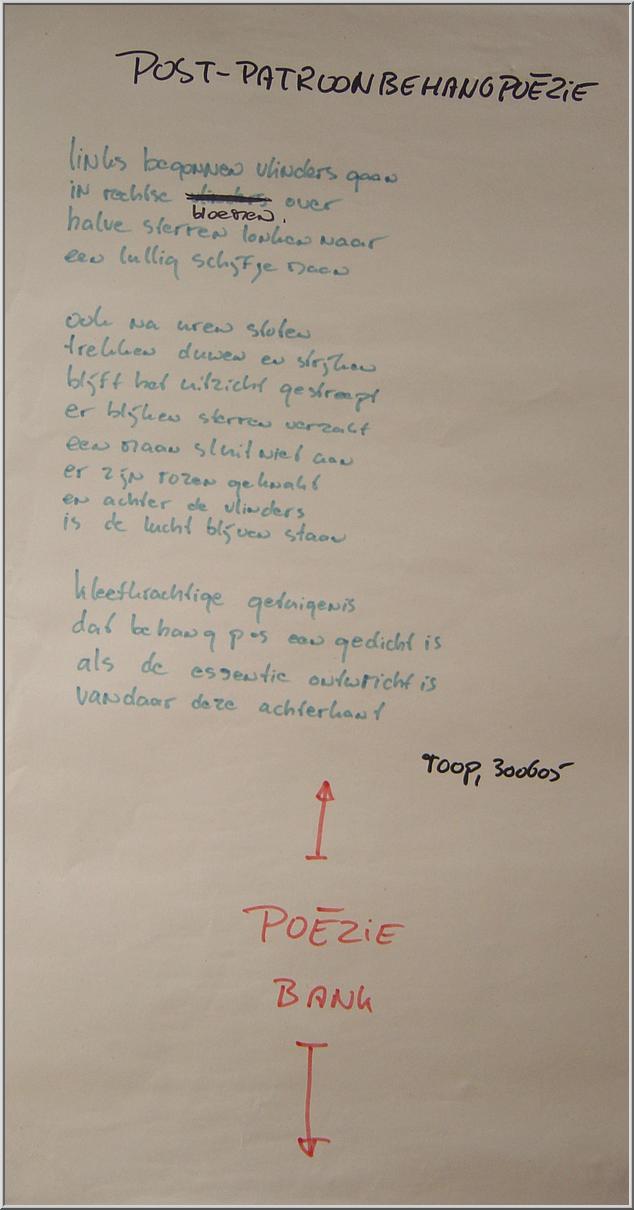 POST-PATROONBEHANGPOËZIE
links begonnen vlinders gaan
in rechtse vlinders over
bloemen.
halve sterren lonken naar
een lullig schijfje maan
ook na uren sloten
trekken duwen en strijken
blijft het uitzicht gestreept
er blijken sterren verzakt
een maan sluit niet aan
er zijn rozen geknakt
en achter de vlinders
is de lucht blijven staan
kleefkrachtige getuigenis
dat behang pas een gedicht is
als de essentie ontwricht is
vandaar deze achterkant
Toop, 300605
POËZIE
BANK